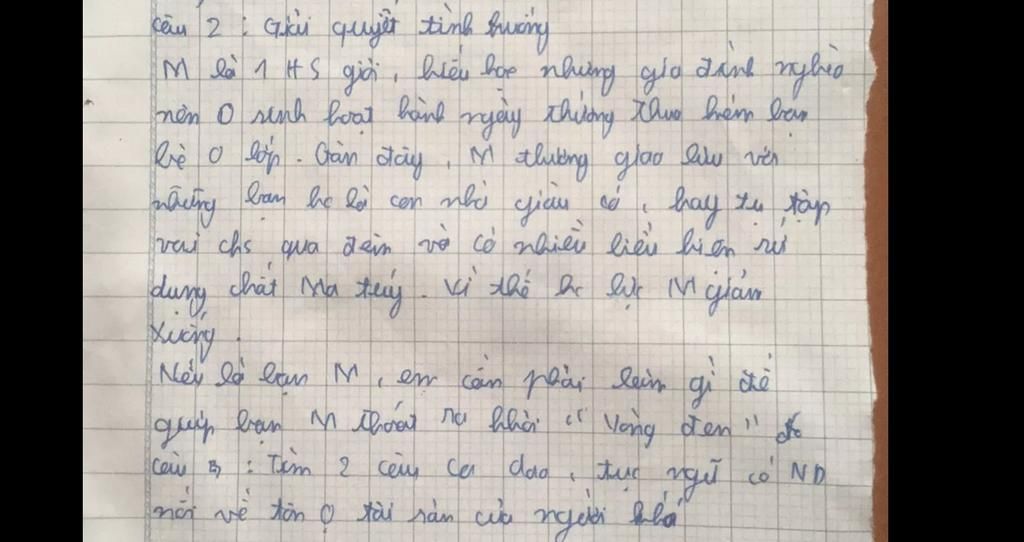 Câu 2 : Giải quyết tình huống
M là 1 HS giỏi, hiếu học nhưng gia đình nghèo
nên O sinh hoạt hành ngày thường thua kém bạn
bè O lớp. Gần đây, M thường giao lưu với
những bạn hs là con nhà giàu có, hay tụ tập
vui chs qua đêm và có nhiều biểu hiện sử
dụng chất Ma túy. Vì thế hs lực M giảm
xuống.
Nếu là bạn M, em cần phải làm gì để
giúp bạn M thoát ra khỏi " Vòng đen "
câu 3 : Tìm 2 câu ca dao, tục ngữ có ND
nói về tôn O tài sản của người khá